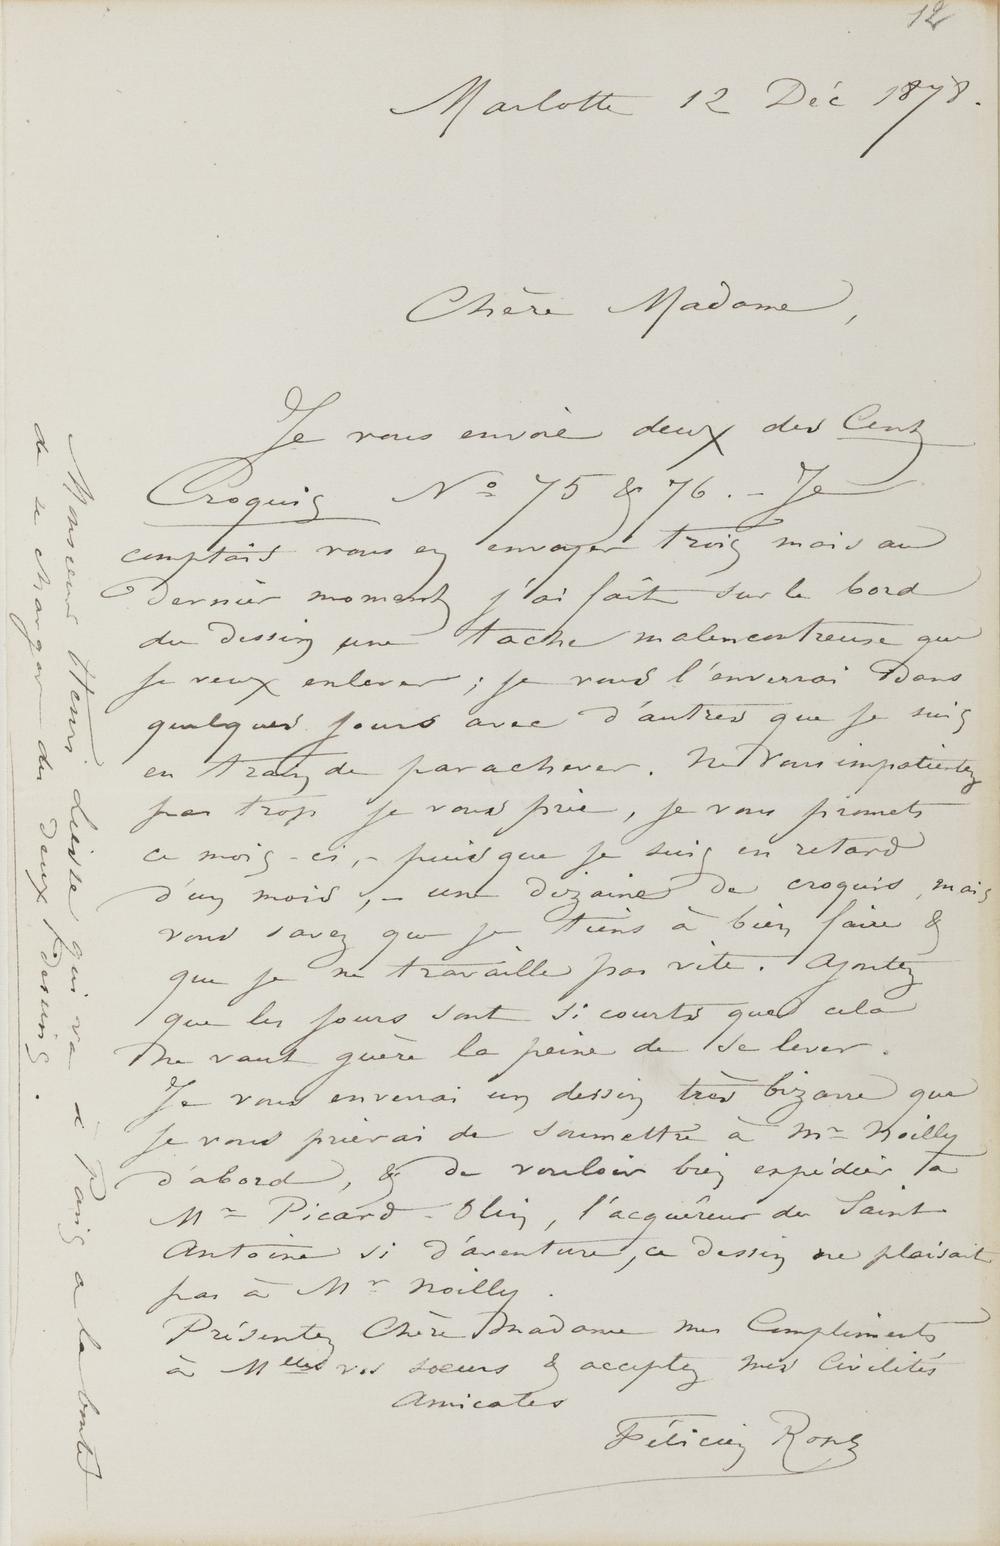 12
Marlotte 12 Déc 1878.
Chère Madame,
Je vous envoie deux des Cent
Croquis Nº 75 & 76. – Je
comptais vous en envoyer trois mais au
dernier moment j'ai fait sur le bord
du dessin une tache malencontreuse que
je veux enlever ; je vous l'enverrai dans
quelques jours avec d'autres que je suis
en train de parachever. Ne vous impatientez
pas trop je vous prie, je vous promets
ce mois-ci, – puisque je suis en retard
d'un mois, – une dizaine de croquis, mais
vous savez que je tiens à bien faire &
que je ne travaille pas vite. Ajoutez
que les jours sont si courts que cela
ne vaut guère la peine de se lever.
Je vous enverrai un dessin très bizarre que
je vous prierai de soumettre à Mr Noilly
d'abord, & de vouloir bien expédier à
Mr Picard-Olin, l'acquéreur du Saint
Antoine si d'aventure, ce dessin ne plaisait
pas à Mr Noilly.
Présentez Chère Madame mes Compliments
à Melles vos soeurs & acceptez mes Civilités
Amicales
Félicien Rops
Monsieur Henri Liesse qui va à Paris a la bonté
de se charger des deux dessins.